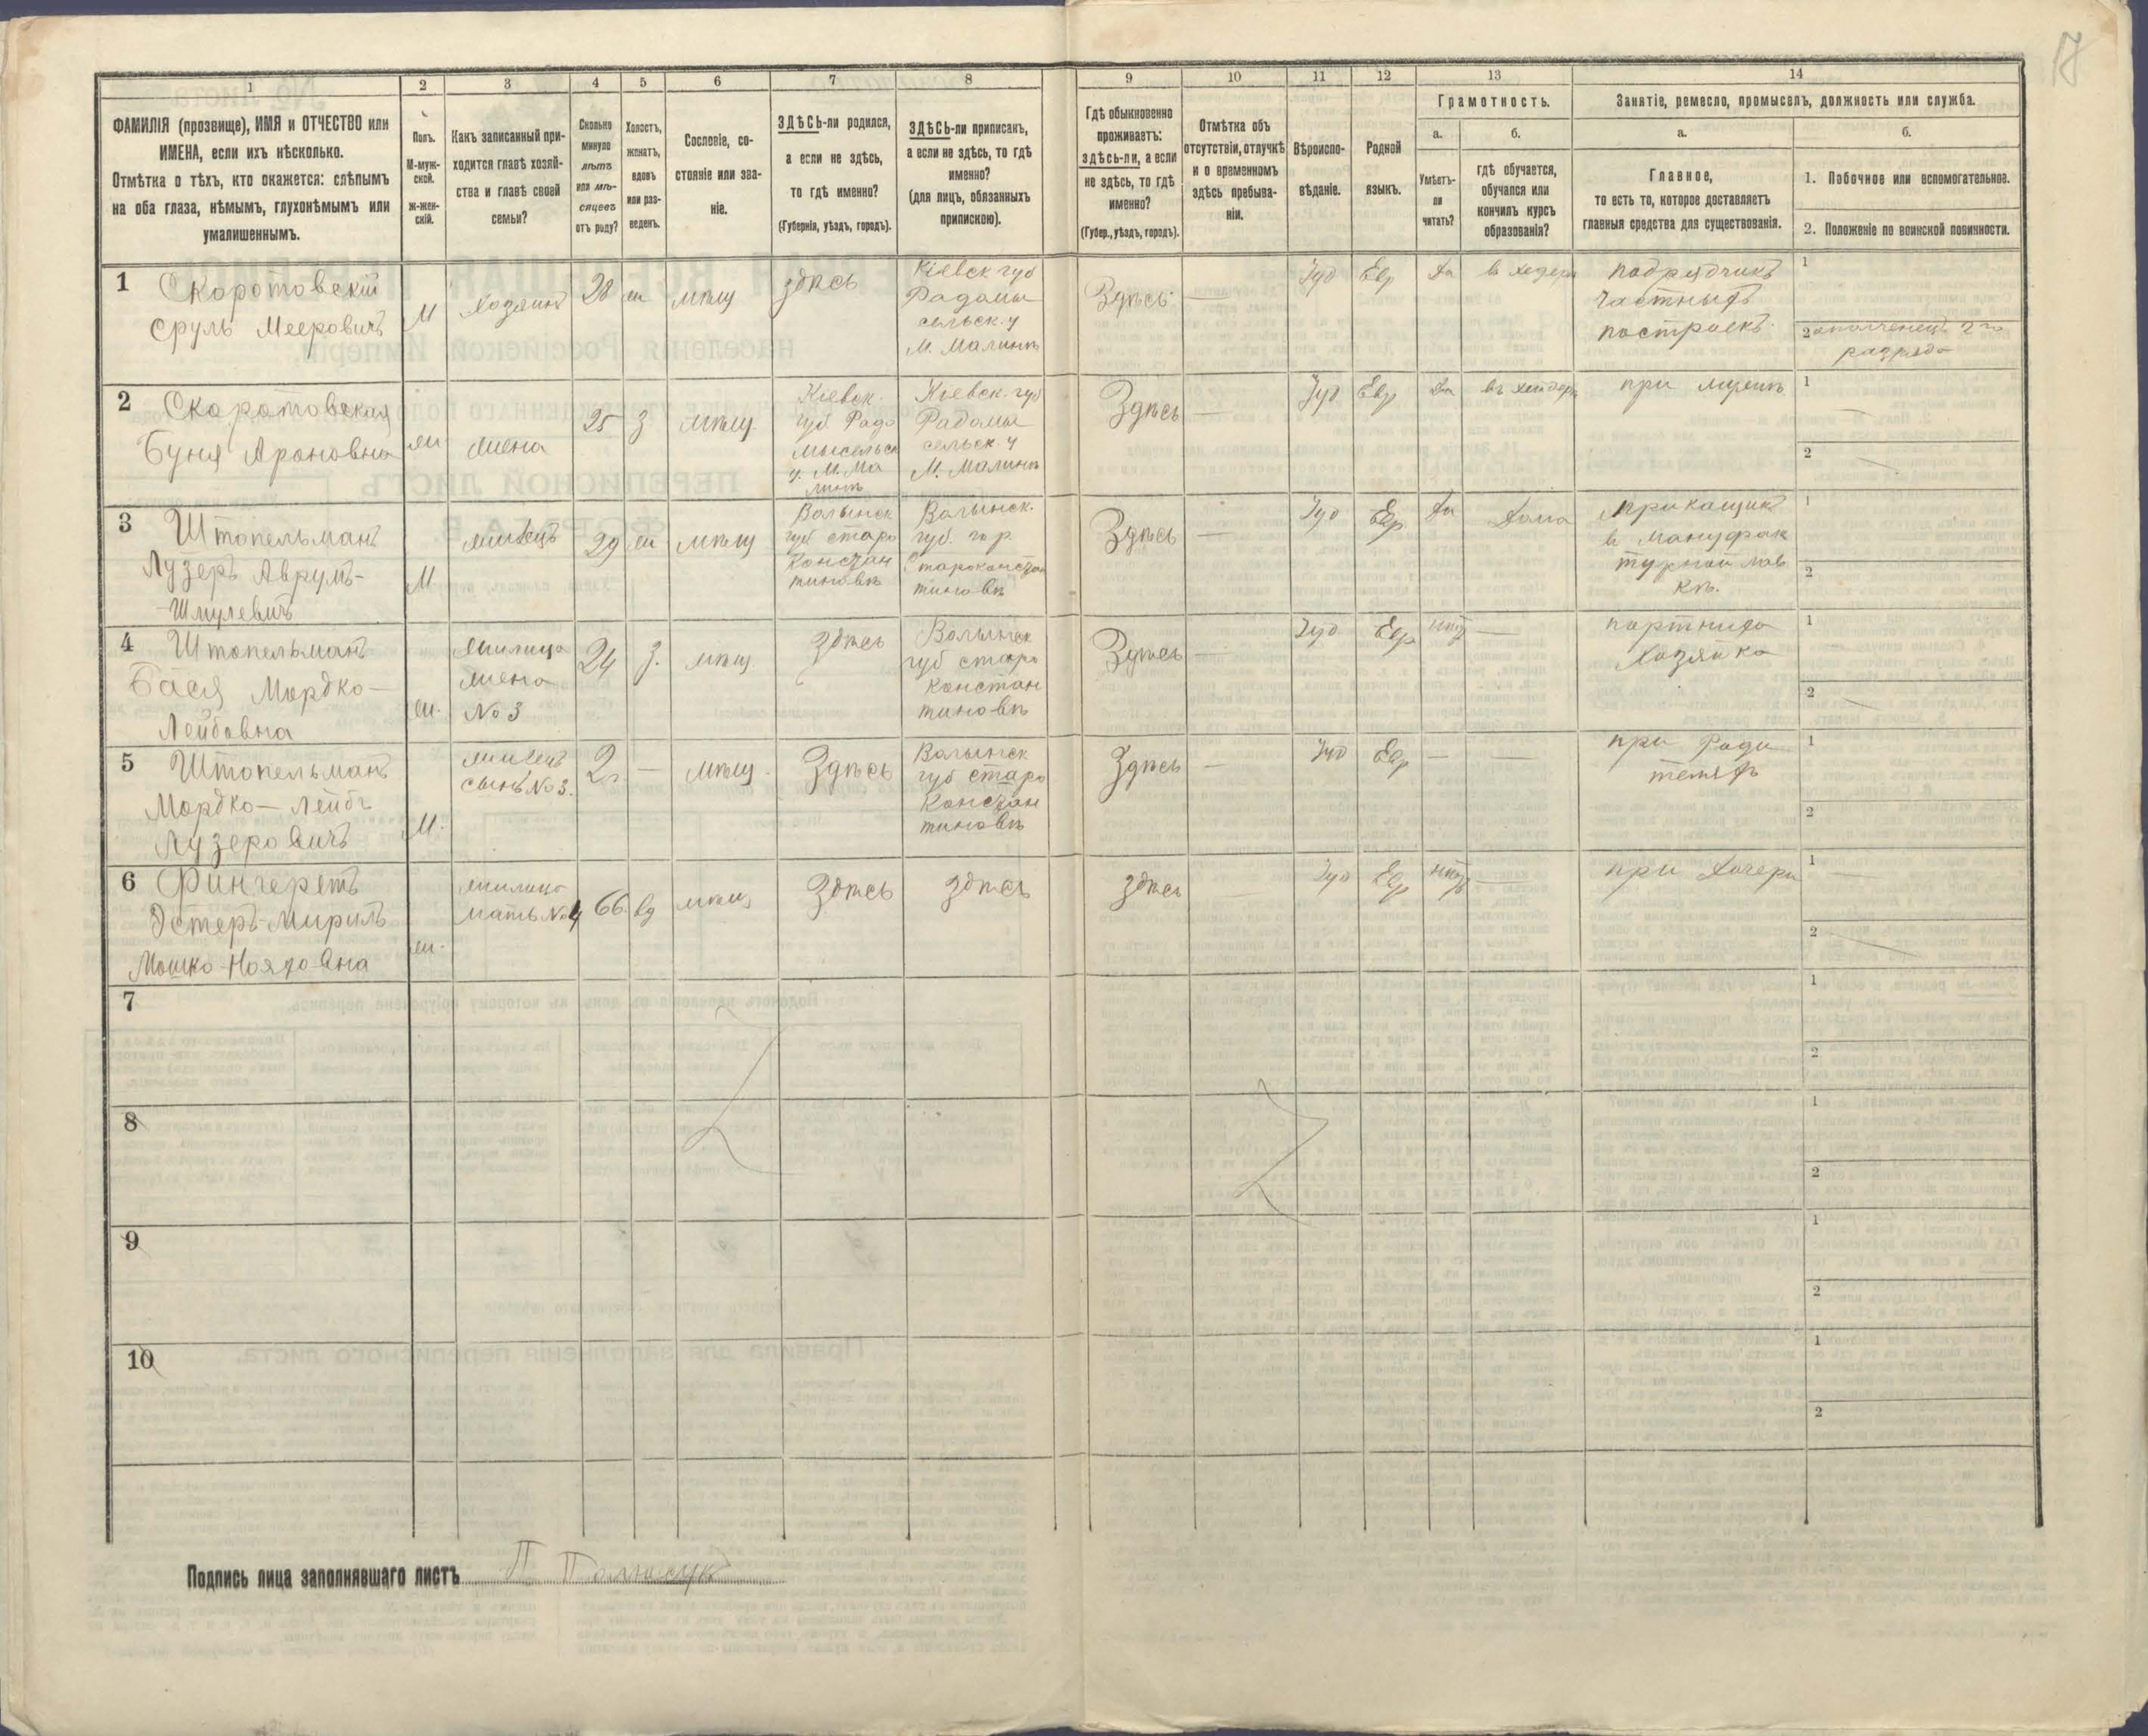 17
1
2
3
4
5
6
7
8
9
10
11
12
13
14
ФАМИЛІЯ (прозвище), ИМЯ и ОТЧЕСТВО или
ИМЕНА, если ихъ нѣсколько.
Отмѣтка о тѣхъ, кто окажется: слѣпымъ
на оба глаза, нѣмымъ, глухонѣмымъ или
умалишеннымъ.
Полъ.
М-муж-
ской.
ж-жен-
скій.
Какъ записанный при-
ходится главѣ хозяй-
ства и главѣ своей
семьи?
Сколько
минуло
лѣтъ
или мѣ-
сяцевъ
отъ роду?
Холостъ,
женатъ,
вдовъ
или раз-
веденъ.
Сословіе, со-
стояніе или зва-
ніе.
ЗДѢСЬ-ли родился,
а если не здѣсь,
то гдѣ именно?
(Губернія, уѣздъ, городъ).
ЗДѢСЬ-ли приписанъ,
а если не здѣсь, то гдѣ
именно?
(для лицъ, обязанныхъ
припискою).
Гдѣ обыкновенно
проживаетъ:
здѣсь-ли, а если
не здѣсь, то гдѣ
именно?
(Губер., уѣздъ, городъ).
Отмѣтка объ
отсутствіи, отлучкѣ
и о временномъ
здѣсь пребыва-
ніи.
Вѣроиспо-
вѣданіе.
Родной
языкъ.
Грамотность.
а.
Умѣетъ-
ли
читать?
б.
гдѣ обучается,
обучался или
кончилъ курсъ
образованія?
Занятіе, ремесло, промыселъ, должность или служба.
а.
Главное,
то есть то, которое доставляетъ
главныя средства для существованія.
б.
1. Побочное или вспомогательное.
2. Положеніе по воинской повинности.
1
Скоротовскій
Сруль Мееровичъ
М
Хозяинъ
28
ж
мѣщ
здѣсь
Кіевск губ
Радомы
сельск. у
М. Малинѣ
Здѣсь
—
Іуд
Евр
Да
въ хедерѣ
подрядчикъ
частныхъ
построекъ
1
2 ополченецъ 2го
разряда
2
Скоротовская
Буня Ароновна
ж
жена
25
З
мѣщ.
Кіевск.
губ. Радо
мысельск
у. М. Ма
линѣ
Кіевск. губ
Радомы
сельск у
М. Малинѣ
Здѣсь
—
Іуд
Евр
Да
въ хейдерѣ
при мужѣ
1
—
2
—
3
Штопельманъ
Лузеръ Аврумъ-
Шмулевичъ
М
жилецъ
29
ж
мѣщ
Волынск
губ старо
констан
тиновѣ
Волынск.
губ. гор.
Староконстан
тиновѣ
Здѣсь
—
Іуд
Евр
Да
Дома
Прикащикъ
въ мануфак
турной лав
кѣ.
1
2
4
Штопельманъ
Бася Мордко-
Лейбовна
ж.
жилица
жена
№ 3
24
З.
мѣщ.
здѣсь
Волынск
губ старо
констан
тиновѣ
Здѣсь
—
Іуд
Евр
нѣтъ
—
портниха
хозяйка
1
2
5
Штопельманъ
Мордко-Лейбъ
Лузеровичъ
М.
жилецъ
сынъ № 3.
2
—
мѣщ.
Здѣсь
Волынск
губ старо
констан
тиновѣ
Здѣсь
—
Іуд
Евр
—
—
при роди
теляхъ
1
2
6
Фингеретъ
Эстеръ-Мириль
ж.
жилица
мать № 4
66
вд
мѣщ
Здѣсь
здѣсь
здѣсь
Іуд
Евр
нѣтъ
—
при дочери
1
—
2
—
7
1
2
8
1
2
9
1
2
10
1
2
Подпись лица заполнявшаго листъ